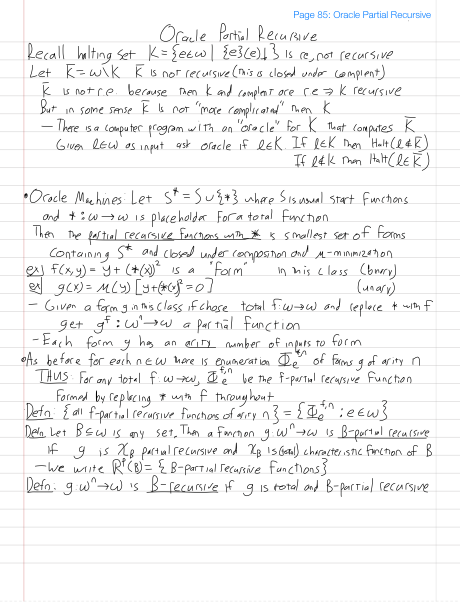 Page 85: Oracle Partial Recursive
Oracle Partial Recursive
Recall halting set K = {e∈ω | {e}(e)↓} is re, not recursive
Let K̅ = ω\K K̅ is not recursive (this is closed under complient)
K̅ is not r.e. because then K and complent are re ⇒ K recursive
But in some sense K̅ is not "more complicated" then K
— There is a computer program with an "oracle" for K that computes K̅
Given l∈ω as input ask oracle if l∈K. If l∈K then Halt(l∉K̅)
If l∉K then Halt(l∈K̅)
• Oracle Machines: Let S* = S∪{*} where S is usual start functions
and *: ω→ω is placeholder for a total function
Then the partial recursive functions with * is smallest set of forms
containing S* and closed under composition and μ-minimization
ex) f(x,y) = y + (*(x))² is a "form" in this class (binary)
ex) g(x) = μ(y)[y+(*(x))²=0] (unary)
– Given a form g in this class if chose total f: ω→ω and replace * with f
get g^f: ω^n→ω a partial function
– Each form g has an arity number of inputs to form
• As before for each n∈ω there is enumeration Φ_e^{*,n} of forms g of arity n
THUS: For any total f: ω→ω, Φ_e^{f,n} be the f-partial recursive function
formed by replacing * with f throughout
Defn: {all f-partial recursive functions of arity n} = {Φ_e^{f,n} : e∈ω}
Defn Let B⊆ω is any set. Then a function g: ω^n→ω is B-partial recursive
if g is χ_B partial recursive and χ_B is (total) characteristic function of B
– We write R^P(B) = {B-partial recursive functions}
Defn: g: ω^n→ω is B-recursive if g is total and B-partial recursive